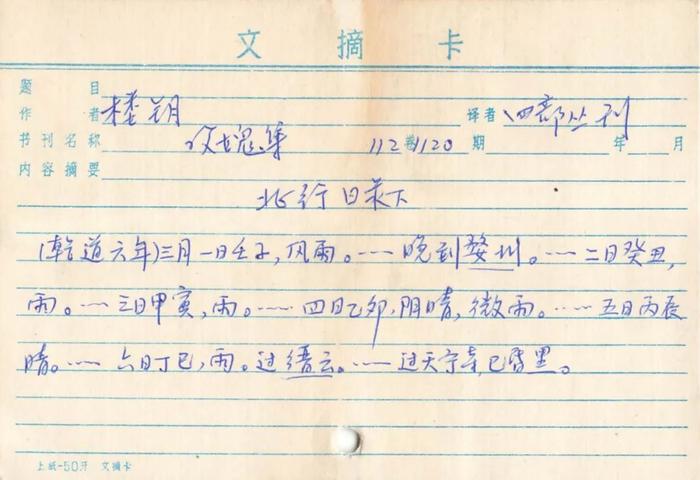 文 摘 卡
题 目
作 者 楼钥 译者 四部丛刊
书刊名称 攻媿集 112卷 1120 期 年 月
内容摘要
北行日录下
(乾道六年)三月一日壬子,风雨。……晚到婺州。……二日癸丑,
雨。……三日甲寅,雨。……四日乙卯,阴晴,微雨。……五日丙辰
晴。……六日丁巳,雨。过缙云。……过天宁寺,已昏黑。
上纸-50开 文摘卡